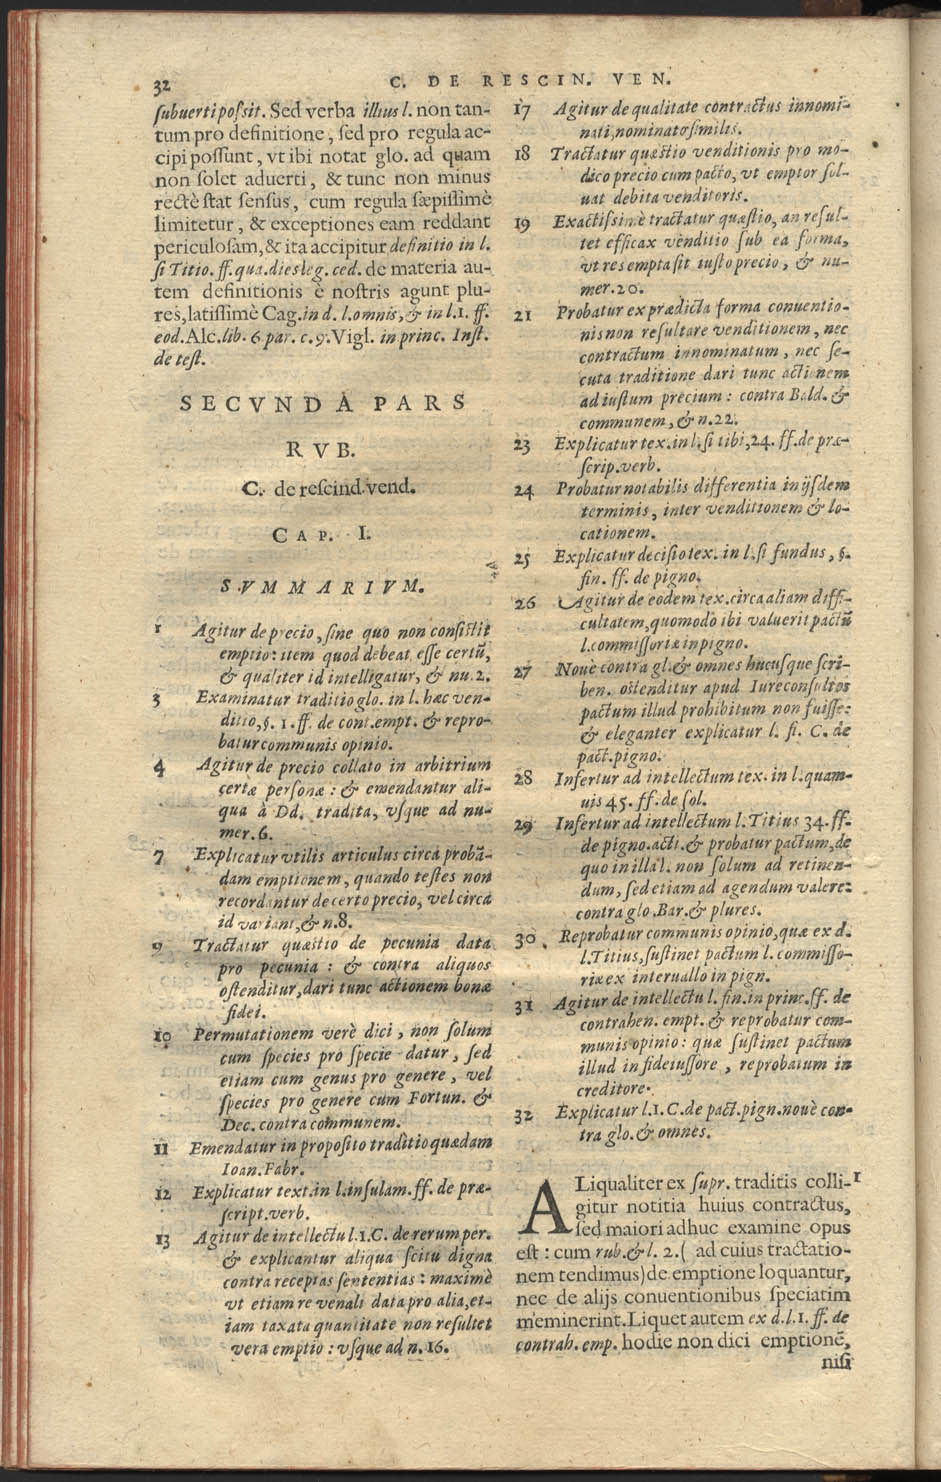 32
C. DE RESCIN. VEN.
ſubuerti poſsit. Sed verba illius l. non tan-
tum pro definitione, ſed pro regula ac-
cipi poſſunt, vt ibi notat glo. ad quam
non ſolet aduerti, & tunc non minus
rectè ſtat ſenſus, cum regula ſæpiſſimè
limitetur, & exceptiones eam reddant
periculoſam, & ita accipitur definitio in l.
ſi Titio. ff. qua. dies leg. ced. de materia au-
tem definitionis è noſtris agunt plu-
res, latiſſimè Cag. in d. l. omnis, & in l. 1. ff.
eod. Alc. lib. 6 par. c. 9. Vigl. in princ. Inſt.
de teſt.
SECVNDA PARS
RVB.
C. de reſcind. vend.
CAP. I.
SVMMARIVM.
1 Agitur de precio, ſine quo non conſiſtit
emptio: item quod debeat eſſe certū,
& qualiter id intelligatur, & nu. 2.
3 Examinatur traditio glo. in l. hæc ven-
ditio, §. 1. ff. de cont. empt. & repro-
batur communis opinio.
4 Agitur de precio collato in arbitrium
certæ perſonæ: & emendantur ali-
qua à Dd. tradita, vſque ad nu-
mer. 6.
7 Explicatur vtilis articulus circa probā-
dam emptionem, quando teſtes non
recordantur de certo precio, vel circa
id variant, & n. 8.
9 Tractatur quæſtio de pecunia data
pro pecunia: & contra aliquos
oſtenditur, dari tunc actionem bonæ
fidei.
10 Permutationem verè dici, non ſolum
cum ſpecies pro ſpecie datur, ſed
etiam cum genus pro genere, vel
ſpecies pro genere cum Fortun. &
Dec. contra communem.
11 Emendatur in propoſito traditio quædam
Ioan. Fabr.
12 Explicatur text. in l. inſulam. ff. de præ-
ſcript. verb.
13 Agitur de intellectu l. 1. C. de rerum per.
& explicantur aliqua ſcitu digna
contra receptas ſententias: maximè
vt etiam re venali data pro alia, et-
iam taxata quantitate non reſultet
vera emptio: vſque ad n. 16.
17 Agitur de qualitate contractus innomi-
nati, nominato ſimilis.
18 Tractatur quæſtio venditionis pro mo-
dico precio cum pacto, vt emptor ſol-
uat debita venditoris.
19 Exactiſsimè tractatur quæſtio, an reſul-
tet efficax venditio ſub ea forma,
vt res empta ſit iuſto precio, & nu-
mer. 20.
21 Probatur ex prædicta forma conuentio-
nis non reſultare venditionem, nec
contractum innominatum, nec ſe-
cuta traditione dari tunc actionem
ad iuſtum precium: contra Bald. &
communem, & n. 22.
23 Explicatur tex. in l. ſi tibi, 24. ff. de præ-
ſcrip. verb.
24 Probatur notabilis differentia in ijſdem
terminis, inter venditionem & lo-
cationem.
25 Explicatur deciſio tex. in l. ſi fundus, §.
fin. ff. de pigno.
26 Agitur de eodem tex. circa aliam diffi-
cultatem, quomodo ibi valuerit pactū
l. commiſſoriæ in pigno.
27 Nouè contra gl. & omnes hucuſque ſcri-
ben. oſtenditur apud Iureconſultos
pactum illud prohibitum non fuiſſe:
& eleganter explicatur l. fi. C. de
pact. pigno.
28 Infertur ad intellectum tex. in l. quam-
uis 45. ff. de ſol.
29 Infertur ad intellectum l. Titius 34. ff.
de pigno. acti. & probatur pactum, de
quo in illa l. non ſolum ad retinen-
dum, ſed etiam ad agendum valere:
contra glo. Bar. & plures.
30 Reprobatur communis opinio, quæ ex d.
l. Titius, ſuſtinet pactum l. commiſſo-
riæ ex interuallo in pign.
31 Agitur de intellectu l. fin. in princ. ff. de
contrahen. empt. & reprobatur com-
munis opinio: quæ ſuſtinet pactum
illud in fideiuſſore, reprobatum in
creditore.
32 Explicatur l. 1. C. de pact. pign. nouè con-
tra glo. & omnes.
ALiqualiter ex ſupr. traditis colli- 1
gitur notitia huius contractus,
ſed maiori adhuc examine opus
eſt: cum rub. & l. 2. (ad cuius tractatio-
nem tendimus) de emptione loquantur,
nec de alijs conuentionibus ſpeciatim
meminerint. Liquet autem ex d. l. 1. ff. de
contrah. emp. hodie non dici emptionē,
niſi